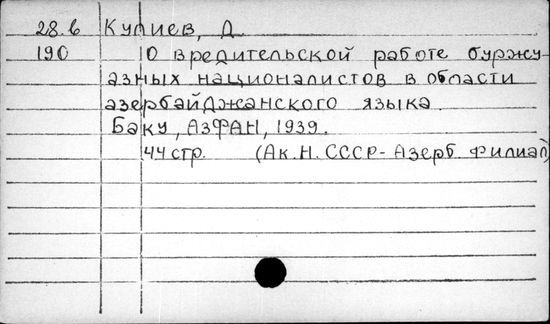 28.6 Кулиев, Д.
190 О вредительской работе буржу-
азных националистов в области
азербайджанского языка.
Баку, АзФАН, 1939.
44 стр. (Ак.Н. СССР - Азерб. филиал)